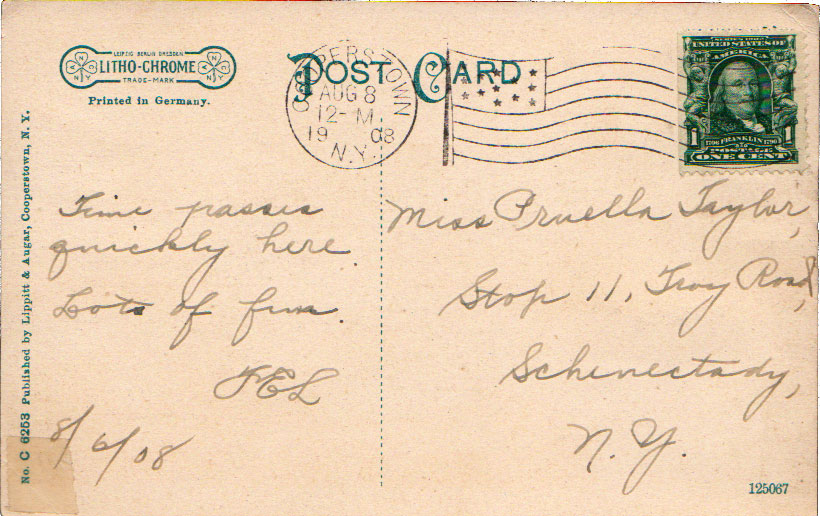 LEIPZIG BERLIN DRESDEN
LITHO-CHROME
TRADE-MARK
Printed in Germany.
POST CARD
COOPERSTOWN
AUG 8
12-M
1908
N.Y.
SERIES 1902
UNITED STATES OF
AMERICA
1706 FRANKLIN 1790
1 POSTAGE 1
ONE CENT
No. C 6253 Published by Lippitt & Augar, Cooperstown, N. Y.
Time passes
quickly here.
Lots of fun.
8/6/08
Miss Pruella Taylor,
Stop 11, Troy Road,
Schenectady,
N. Y.
125067